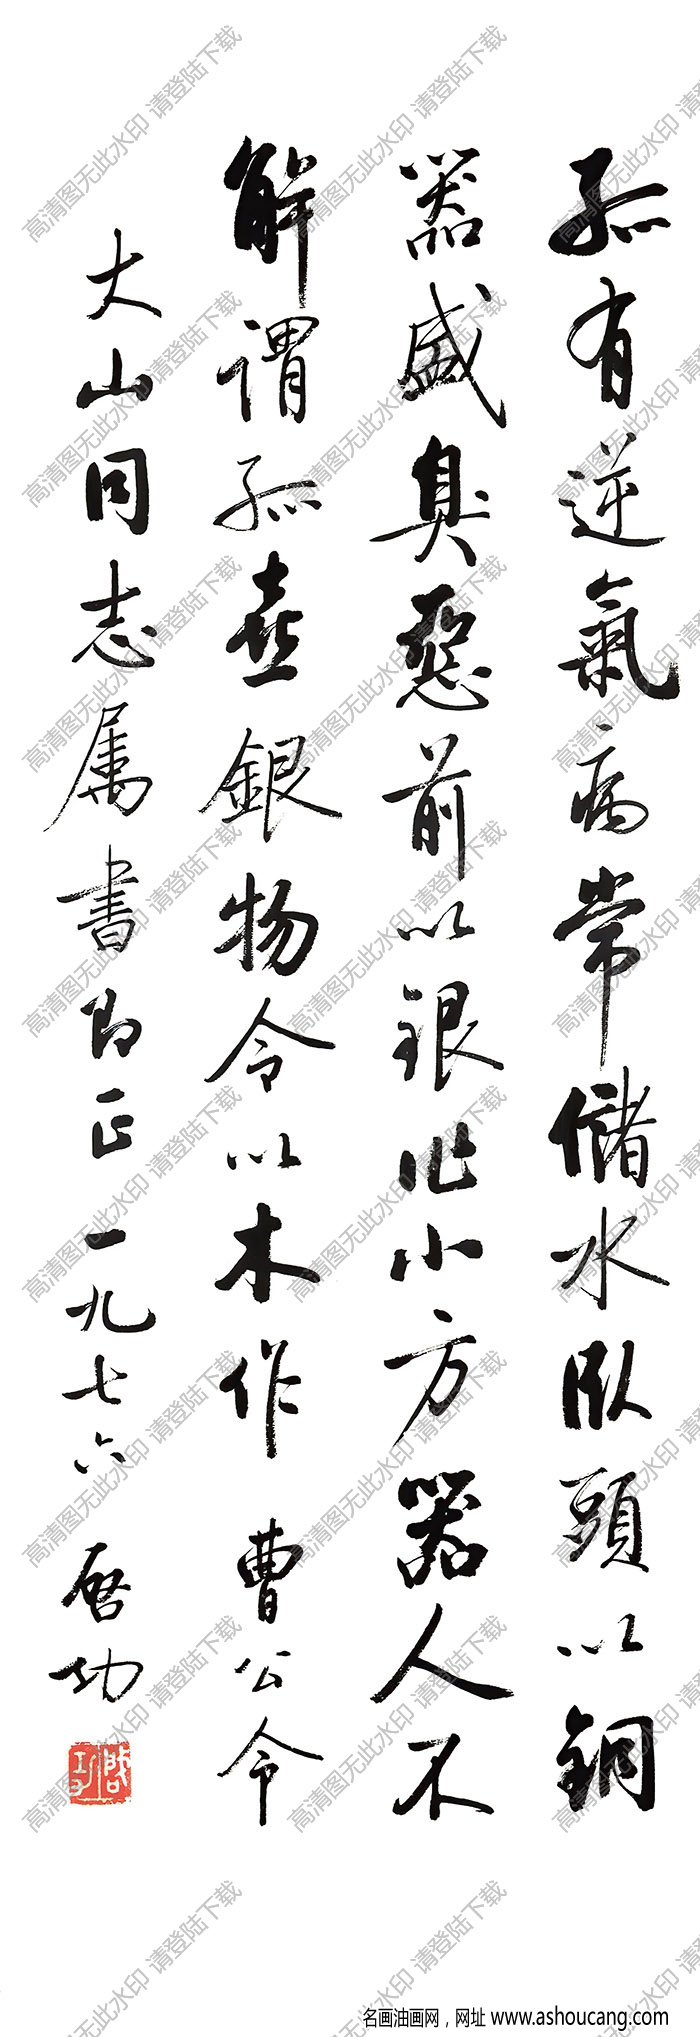 孤有逆氣病常儲水臥頭以銅
器盛臭惡前以銀作小方器人不
解謂孤喜銀物令以木作 曹公令
大山同志属書即正 一九七六 啓功
啓功
名画油画网，网址 www.ashoucang.com
高清图无此水印 请登陆下载